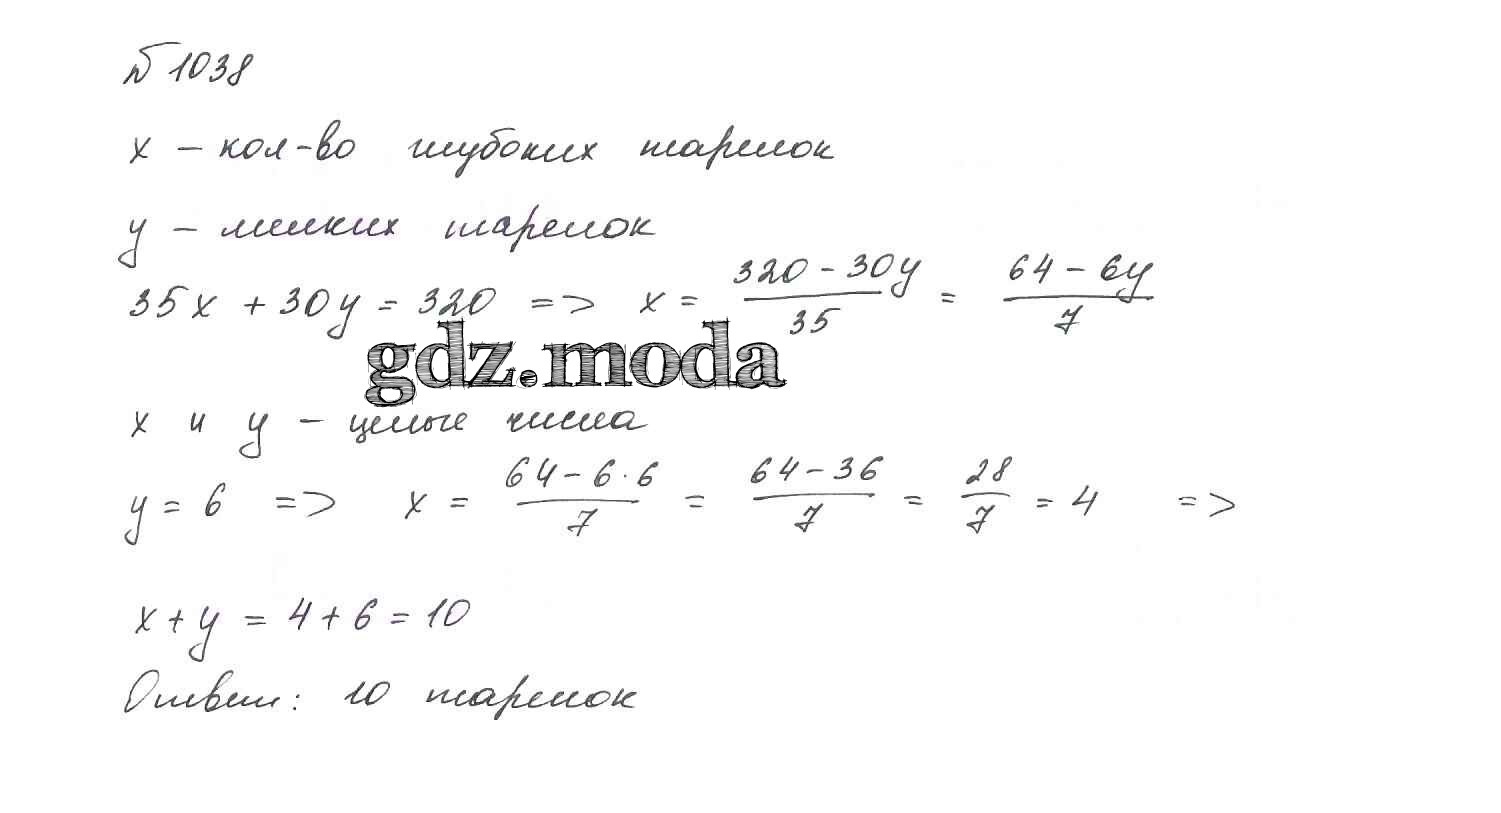 № 1038
x – кол-во глубоких тарелок
y – мелких тарелок
35x + 30y = 320 => x = (320 - 30y)/35 = (64 - 6y)/7
gdz.moda
x и y – целые числа
y = 6 => x = (64 - 6·6)/7 = (64 - 36)/7 = 28/7 = 4 =>
x + y = 4 + 6 = 10
Ответ: 10 тарелок